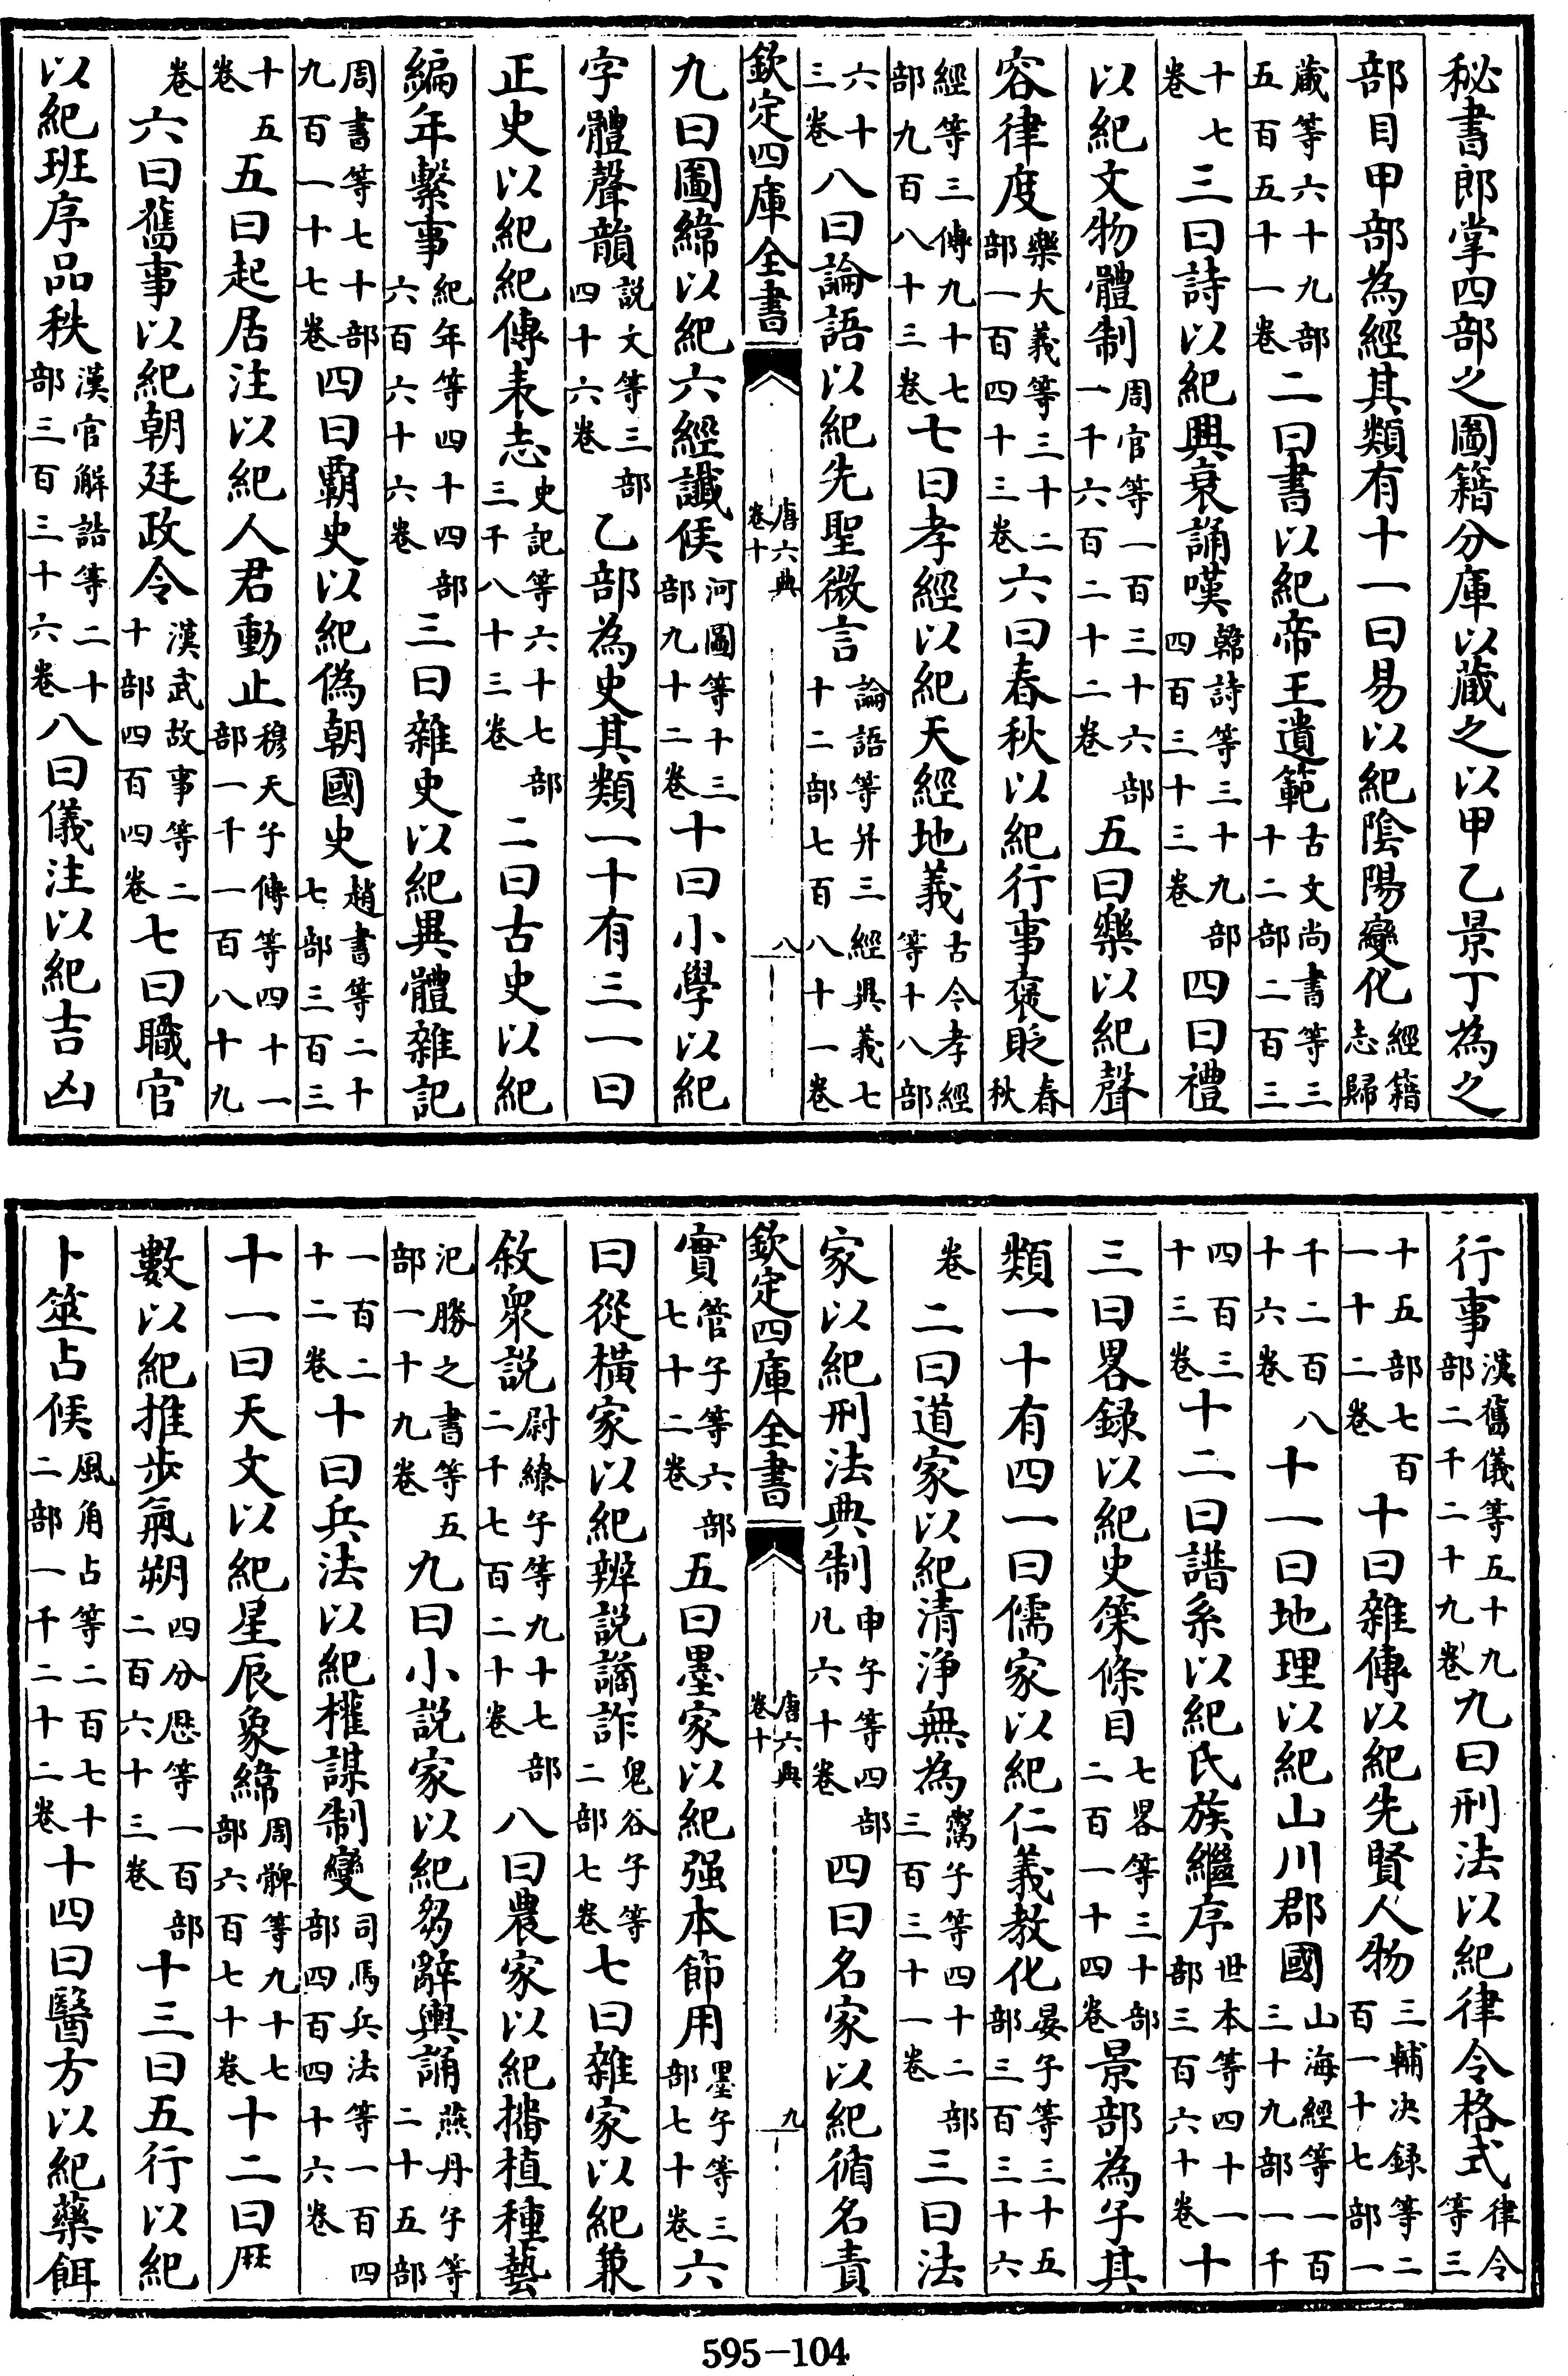 秘書郎掌四部之圖籍分庫以藏之以甲乙景丁為之
部目甲部為經其類有十一曰易以紀陰陽變化經籍志歸
藏等六十九部五百五十一卷二曰書以紀帝王遺範古文尚書等三十二部二百三
十七卷三曰詩以紀興衰誦嘆韓詩等三十九部四百三十三卷四曰禮
以紀文物體制周官等一百三十六部一千六百二十二卷五曰樂以紀聲
容律度樂大義等三十二部一百四十三卷六曰春秋以紀行事褒貶春秋
經等三傳九十七部九百八十三卷七曰孝經以紀天經地義古今孝經等十八部
六十三卷八曰論語以紀先聖微言論語等并三經異義七十二部七百八十一卷
欽定四庫全書 唐六典卷十 八
九曰圖緯以紀六經讖候河圖等十三部九十二卷十曰小學以紀
字體聲韻説文等三部四十六卷乙部為史其類一十有三一曰
正史以紀紀傳表志史記等六十七部三千八十三卷二曰古史以紀
編年繫事紀年等四十四部六百六十六卷三曰雜史以紀異體雜記
周書等七十部九百一十七卷四曰霸史以紀偽朝國史趙書等二十七部三百三
十五卷五曰起居注以紀人君動止穆天子傳等四十一部一千一百八十九
卷六曰舊事以紀朝廷政令漢武故事等二十部四百四卷七曰職官
以紀班序品秩漢官解詁等二十部三百三十六卷八曰儀注以紀吉凶
行事漢舊儀等五十九部二千二十九卷九曰刑法以紀律令格式律令等三
十五部七百一十二卷十曰雜傳以紀先賢人物三輔決録等二百一十七部一
千二百八十六卷十一曰地理以紀山川郡國山海經等一百三十九部一千
四百三十三卷十二曰譜系以紀氏族繼序世本等四十一部三百六十卷十
三曰畧録以紀史策條目七畧等三十部二百一十四卷景部為子其
類一十有四一曰儒家以紀仁義教化晏子等三十五部三百三十六
卷二曰道家以紀清浄無為鬻子等四十二部三百三十一卷三曰法
家以紀刑法典制申子等四部凡六十卷四曰名家以紀循名責
欽定四庫全書 唐六典卷十 九
實管子等六部七十二卷五曰墨家以紀强本節用墨子等三部七十卷六
曰從横家以紀辨説譎詐鬼谷子等二部七卷七曰雜家以紀兼
敘衆説尉繚子等九十七部二千七百二十卷八曰農家以紀播植種藝
汜勝之書等五部一十九卷九曰小説家以紀芻辭輿誦燕丹子等二十五部
一百二十二卷十曰兵法以紀權謀制變司馬兵法等一百四部四百四十六卷
十一曰天文以紀星辰象緯周髀等九十七部六百七十卷十二曰厤
數以紀推歩氣朔四分厯等一百部二百六十三卷十三曰五行以紀
卜筮占候風角占等二百七十二部一千二十二卷十四曰醫方以紀藥餌
595-104